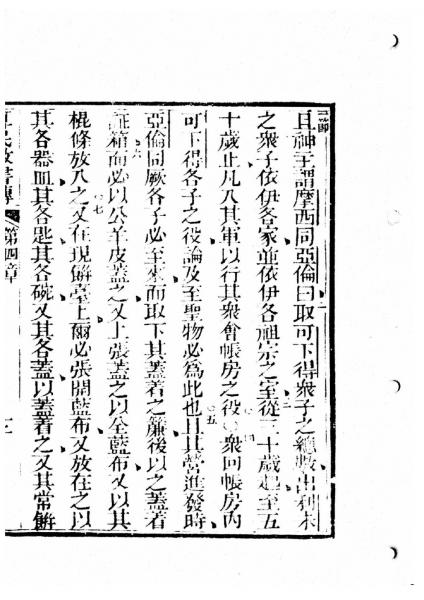 一節
且神主謂摩西同亞倫曰取可下得衆子之總數出利未
之衆子依伊各家並依伊各祖宗之室從三十歲起至五
十歲止凡入其軍以行其衆會帳房之役衆回帳房內
可下得各子之役論及至聖物必爲此也且其營進發時
亞倫同厥各子必至來而取下其蓋着之簾後以之蓋着
証箱而必以公羊皮蓋之又上張蓋之以全藍布又以其
棍條放入之又在現餅臺上爾必張開藍布又放在之以
其各器皿其各匙其各碗又其各蓋以蓋着之又其常餅
第四章